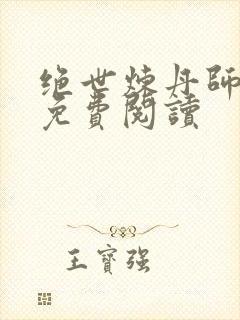 绝世炼丹师
免費閱讀
王寶强